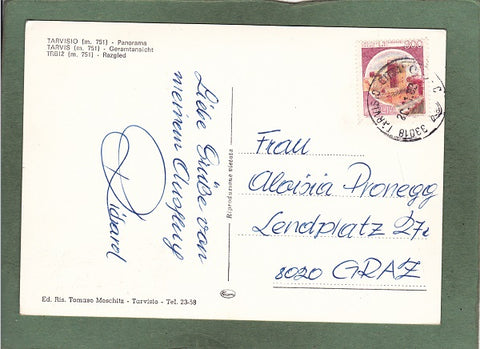 TARVISIO (m. 751) - Panorama
TARVIS (m. 751) - Gesamtansicht
TRBIZ (m. 751) - Razgled
Liebe Grüße von
meinem Ausflug
Richard
Riproduzione vietata
Frau
Aloisia Pronegg
Lendplatz 27c
8020 GRAZ
33018 TARVISIO
Ed. Ris. Tomaso Moschitz - Tarvisio - Tel. 23-58